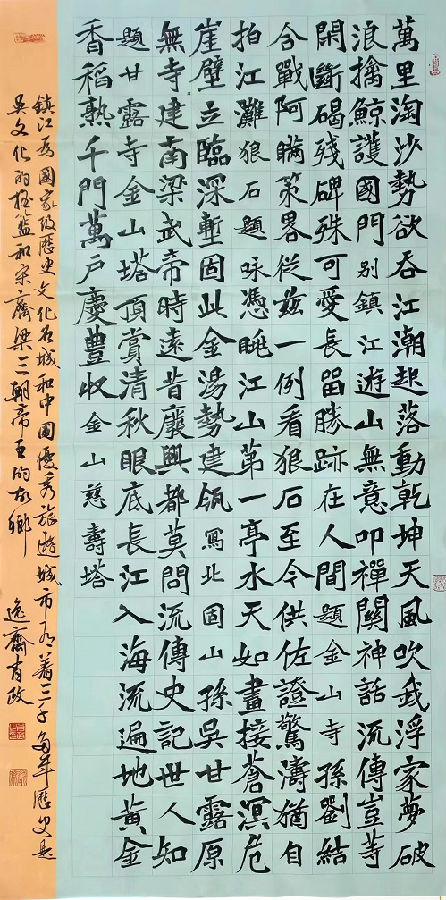 萬里淘沙勢欲吞江潮起落動乾坤天風吹我浮家夢破
浪擒鯨護國門别鎮江遊山無意叩禪關神話流傳豈等
閑斷碣殘碑殊可愛長留勝跡在人間題金山寺孫劉結
合戰阿瞞策畧從兹一例看狠石至今供佐證驚濤猶自
拍江灘狼石題咏憑眺江山第一亭水天如畫接蒼溟危
崖壁立臨深塹固此金湯勢建瓴寫北固山孫吳甘露原
無寺建南梁武帝時遠昔嚴興都莫問流傳史記世人知
題甘露寺金山塔頂賞清秋眼底長江入海流遍地黄金
香稻熟千門萬户慶豊收金山慈壽塔
鎮江為國家級歷史文化名城和中國優秀旅遊城市有着三千多年歷史是
吴文化的摇篮和宋齊梁三朝帝王的故鄉 逸齋育政